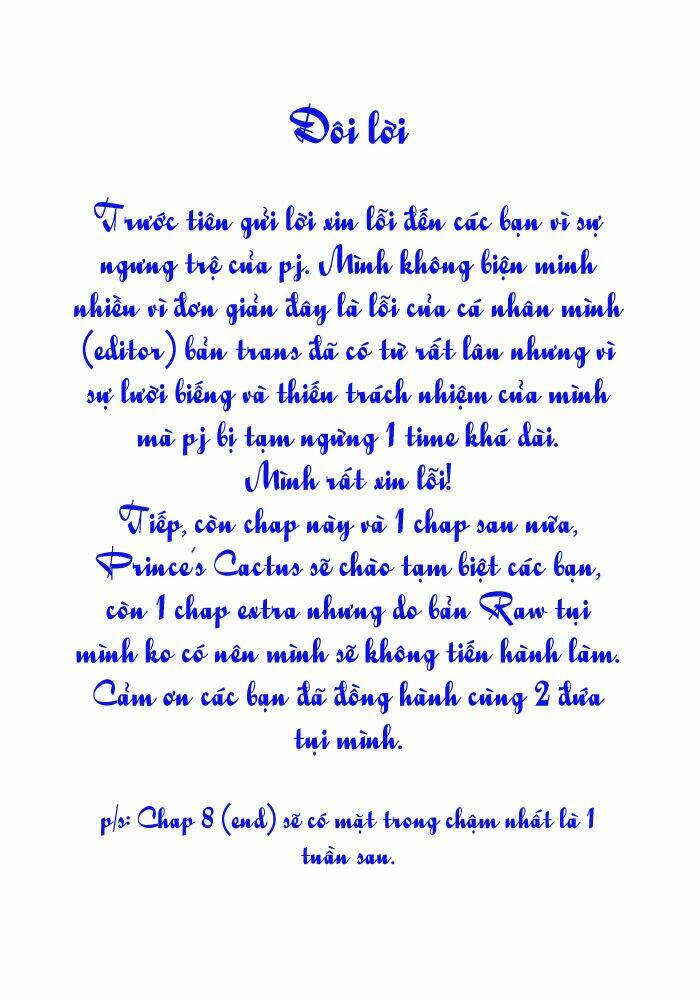 Đôi lời
Trước tiên gửi lời xin lỗi đến các bạn vì sự
ngưng trệ của pj. Mình không biện minh
nhiều vì đơn giản đây là lỗi của cá nhân mình
(editor) bản trans đã có từ rất lâu nhưng vì
sự lười biếng và thiếu trách nhiệm của mình
mà pj bị tạm ngưng 1 time khá dài.
Mình rất xin lỗi!
Tiếp, còn chap này và 1 chap sau nữa,
Prince's Cactus sẽ chào tạm biệt các bạn,
còn 1 chap extra nhưng do bản Raw tụi
mình ko có nên mình sẽ không tiến hành làm.
Cảm ơn các bạn đã đồng hành cùng 2 đứa
tụi mình.
p/s: Chap 8 (end) sẽ có mặt trong chậm nhất là 1
tuần sau.